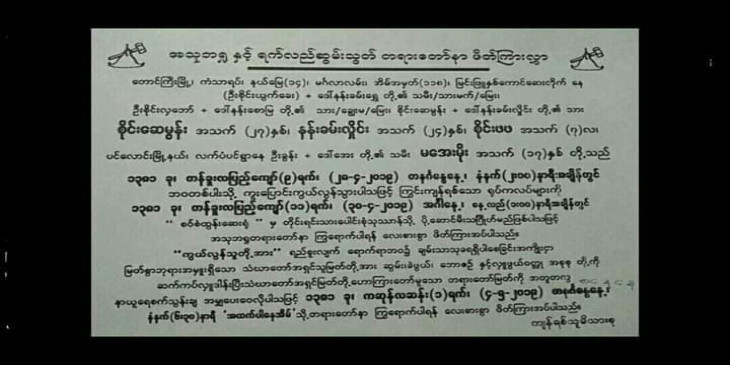 အသုဘရှု နှင့် ရက်လည်ဆွမ်းသွတ် တရားတော်နာ ဖိတ်ကြားလွှာ
တောင်ကြီးမြို့၊ ကံသာရပ်၊ နယ်မြေ(၁၄)၊ မင်္ဂလာလမ်း၊ အိမ်အမှတ်(၁၁၈)၊ မြင်းဖြူနှစ်ကောင်ဆေးလိပ် နေ
(ဦးစိုင်းယွက်ခေး) + ဒေါ်နန်းခမ်းရွှေ တို့၏ သမီး/သားမက်/မြေး၊
ဦးစိုင်းလှဘော် + ဒေါ်နန်းစောမြ တို့၏ သား/ချွေးမ/မြေး၊ စိုင်းဆေမွန်း + ဒေါ်နန်းခမ်းလှိုင်း တို့၏ သား
စိုင်းဆေမွန်း အသက် (၂၇)နှစ်၊ နန်းခမ်းလှိုင်း အသက် (၂၄)နှစ်၊ စိုင်းဖဖ အသက် (၇)လ၊
ပင်လောင်းမြို့နယ်၊ လက်ပံပင်ရွာနေ ဦးခွန်း + ဒေါ်အေး တို့၏ သမီး မအေးမိုး အသက် (၁၇)နှစ် တို့သည်
၁၃၈၁ ခု၊ တန်ခူးလပြည့်ကျော်(၉)ရက်၊ (၂၈-၄-၂၀၁၉) တနင်္ဂနွေနေ့၊ နံနက်(၂း၀၀)နာရီအချိန်တွင်
ဘဝတစ်ပါးသို့ ကူးပြောင်းကွယ်လွန်သွားပါသဖြင့် ကြွင်းကျန်ရစ်သော ရုပ်ကလပ်များကို
၁၃၈၁ ခု၊ တန်ခူးလပြည့်ကျော်(၁၁)ရက်၊ (၃၀-၄-၂၀၁၉) အင်္ဂါနေ့၊ နေ့လည်(၁း၀၀)နာရီအချိန်တွင်
" စဝ်စံထွန်းဆေးရုံ " မှ တိုင်းရင်းသားပေါင်းစုံသုသာန်သို့ ပို့ဆောင်မီးသင်္ဂြိုဟ်မည်ဖြစ်ပါသဖြင့်
အသုဘရှုတရားတော်နာ ကြွရောက်ပါရန် လေးစားစွာ ဖိတ်ကြားအပ်ပါသည်။
"ကွယ်လွန်သူတို့အား" ရည်စူးလျက် ရောက်ရာဘဝ၌ ချမ်းသာသုခရရှိပါစေခြင်းအကျိုးငှာ
မြတ်စွာဘုရားအမှူးရှိသော သံဃာတော်အရှင်သူမြတ်တို့အား ဆွမ်းခဲဖွယ်၊ ဘောဇဉ် နှင့်လှူဖွယ်ဝတ္ထု အစုစု တို့ကို
ဆက်ကပ်လှူဒါန်းပြီးသံဃာတော်အရှင်မြတ်တို့ဟောကြားတော်မူသော တရားတော်မြတ်ကို အတူတကွ
နာယူရေစက်သွန်းချ အမျှပေးဝေလိုပါသဖြင့် ၁၃၈၁ ခု၊ ကဆုန်လဆန်း(၁)ရက်၊ (၄-၅-၂၀၁၉) တနင်္ဂနွေနေ့၊
နံနက်(၆း၃၀)နာရီ 'အထက်ပါနေအိမ်' သို့ တရားတော်နာ ကြွရောက်ပါရန် လေးစားစွာ ဖိတ်ကြားအပ်ပါသည်။
ကျန်ရစ်သူမိသားစု